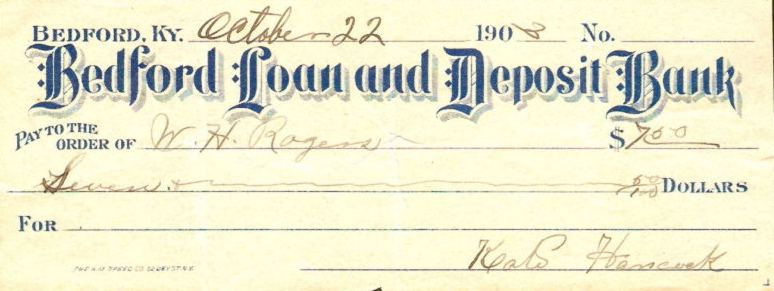 BEDFORD, KY. October 22 1908 No.
Bedford Loan and Deposit Bank
PAY TO THE ORDER OF W. H. Rogers $7.00
Seven & 00/100 DOLLARS
FOR
Hancock